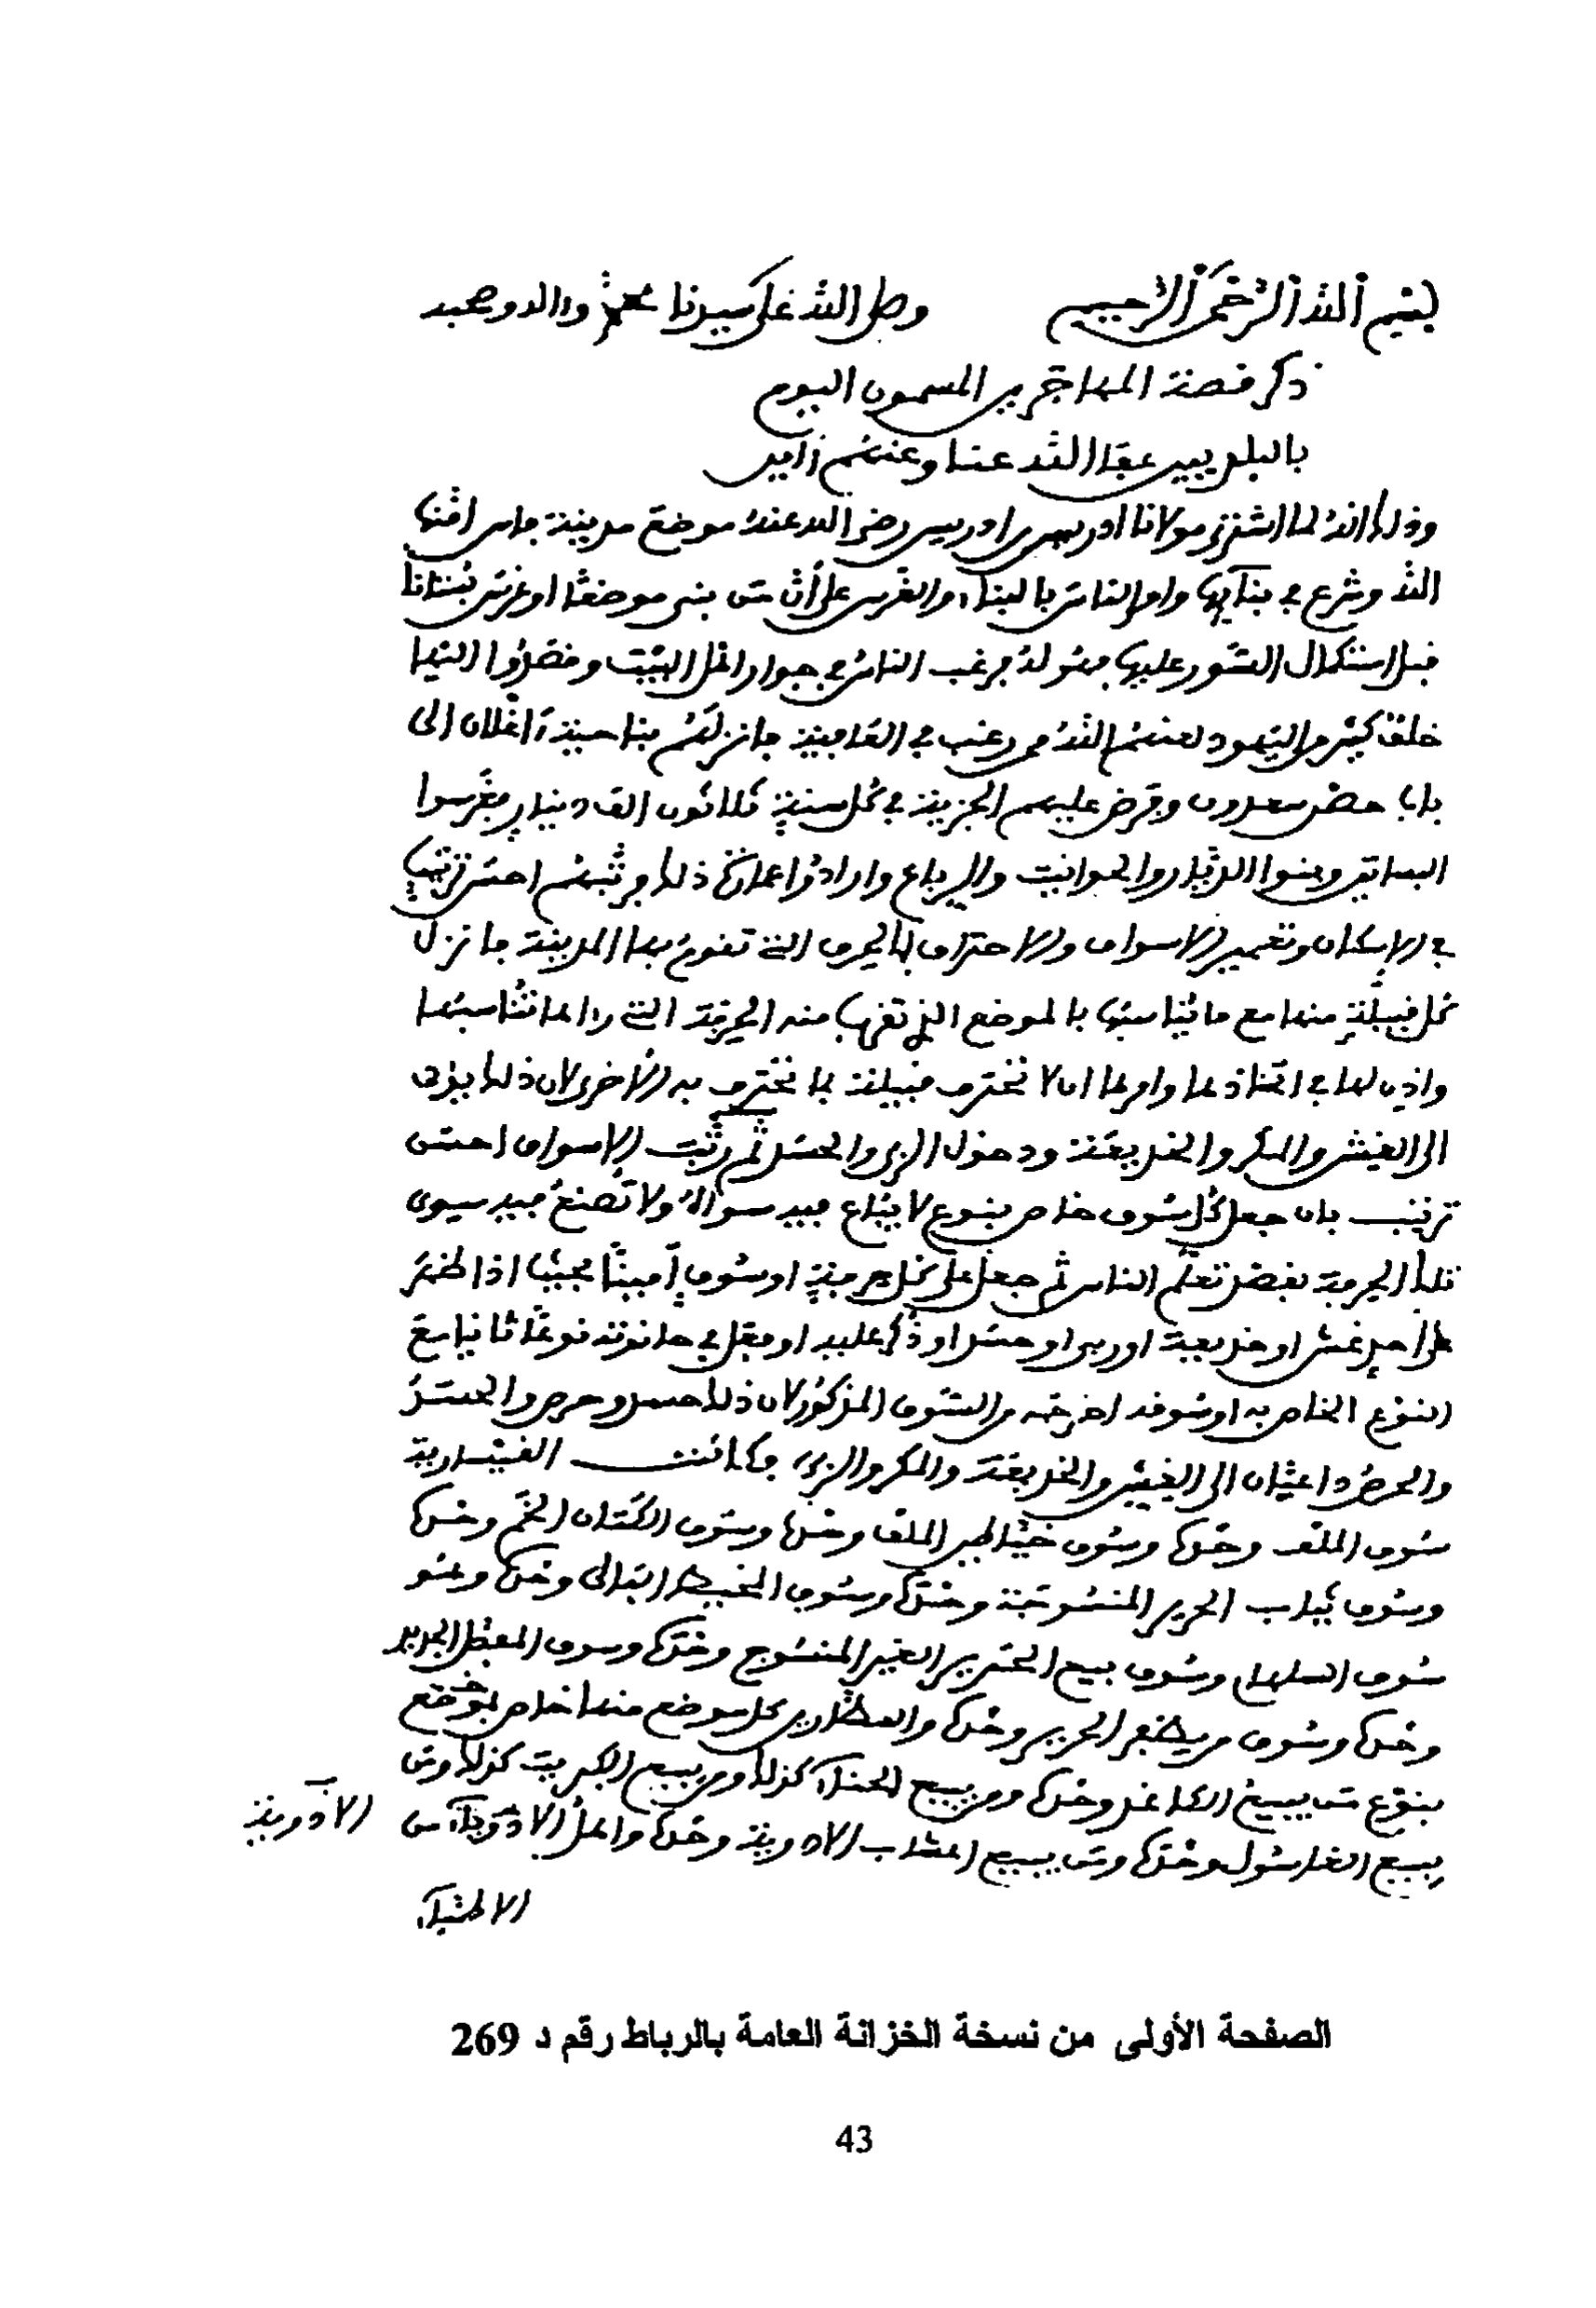 بسم الله الرحمن الرحيم وصلى الله على سيدنا محمد وآله وصحبه
ذكر قصة المهاجرين المسمون اليوم
بالبلديين عفا الله عنا وعنهم آمين
وذلك أنه لما اشترى مولانا ادريس بن ادريس رضي الله عنه موضع مدينة فاس أمنها
الله وشرع في بنائها وامر الناس بالبناء والغرس على أن من بنى موضعا او غرس بستانا
قبل استكمال السور عليها فهو له فرغب الناس في جوار اهل البيت وقصدوا اليها
خلق كثير من اليهود لعنهم الله ممن رغب في العافية فانزلهم بناحية أغلان الى
باب حصن سعدون وفرض عليهم الجزية في كل سنة ثلاثون الف دينار فغرسوا
البساتين وبنوا الديار والحوانيت والرباع وارادوا عمارة ذلك فرتبهم احسن ترتيب
في الاسكان وتعمير الاسواق والاحتراف بالحرف التي تقوم بها المدينة فانزل
كل قبيلة منها مع ما يناسبها بالموضع الذي تقربها منه الحرفة التي رءاها تناسبها
واذن لها في اتخاذها وامرها ان لا تحترف قبيلة بما تحترف به الأخرى لان ذلك يؤدي
الى الغش والمكر والخديعة ودخول الربى والحسد ثم رتب الاسواق احسن
ترتيب بان جعل كل سوق خاص بنوع لا يباع فيه سواه ولا تصنع فيه سوى
تلك الحرفة بقصد تعلم الناس ثم جعل على كل حرفة او سوق أمينا محتسبا اذا ظهر
على احد غش او خديعة او ربى او حسد او ذكر عليه او فعل في حانوته نوعا ثانيا مع
النوع الخاص به او سوقه اخرجه من السوق المذكور لان ذلك حسد وحرص والحسد
والحرص داعيان الى الغش والخديعة والمكر والربى فكانت القيسارية
سوق الملف وحدها وسوق خياطين الملف وحدها وسوق الكتان الخم وحدها
وسوق ثياب الحرير المنسوجة وحدها وسوق الخيط البالي وحدها وهو
سوق السلهام وسوق بيع الحرير الغير المنسوج وحدها وسوق المعطل الحرير
وحدها وسوق من يضفر الحرير وحدها والعطارين كل موضع منها خاص بوضع
بنوع من يبيع الكاغد وحدها ومن يبيع الحناء كذلك ومن يبيع الكبريت كذلك ومن
يبيع الغاسول وحدها ومن يبيع اعشاب الادوية وحدها واهل الادوية من الادوية
الاطباء
الصفحة الأولى من نسخة الخزانة العامة بالرباط رقم د 269
43